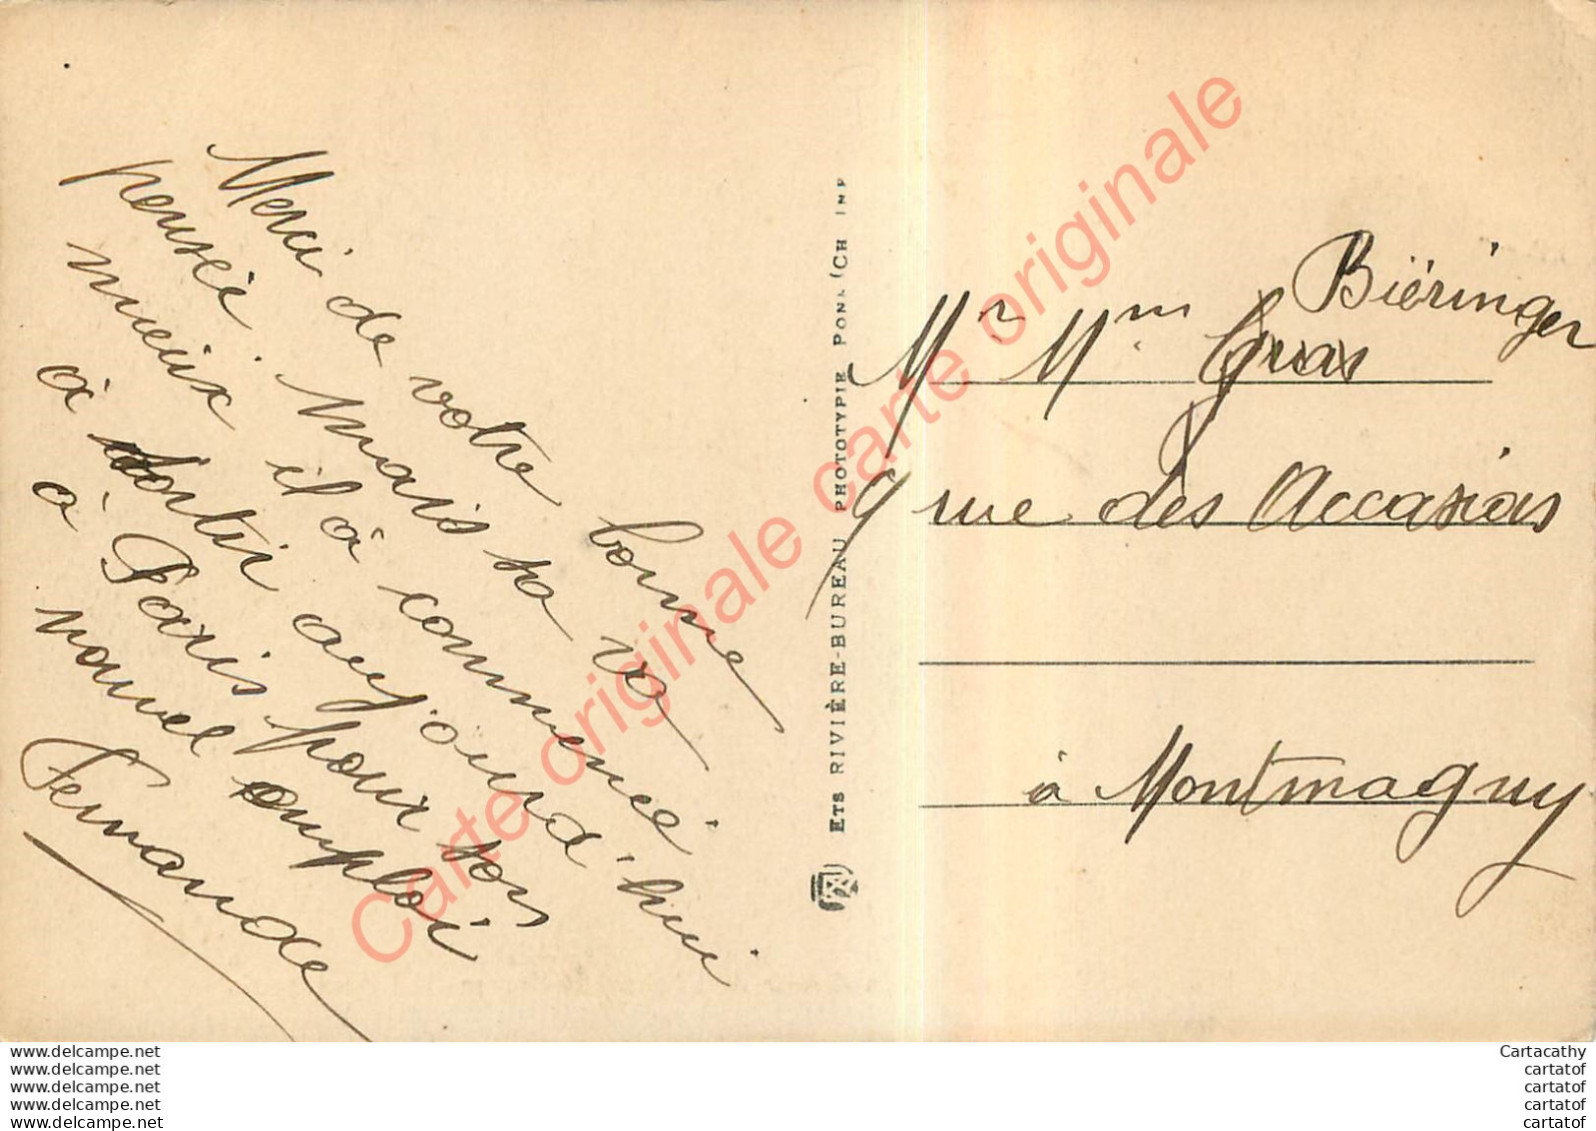 Merci de votre bonne
pensée, mais sa va
mieux il à commencé
à sortir auj'ourd'hui
à Paris pour son
nouvel emploi
Fernande
ETS RIVIÈRE-BUREAU PHOTOTYPIE
Carte originale carte originale
Biëringer
Mr Mm Gras
9 rue des Accasias
à Montmagny
www.delcampe.net
www.delcampe.net
www.delcampe.net
www.delcampe.net
www.delcampe.net
Cartacathy
cartatof
cartatof
cartatof
cartatof